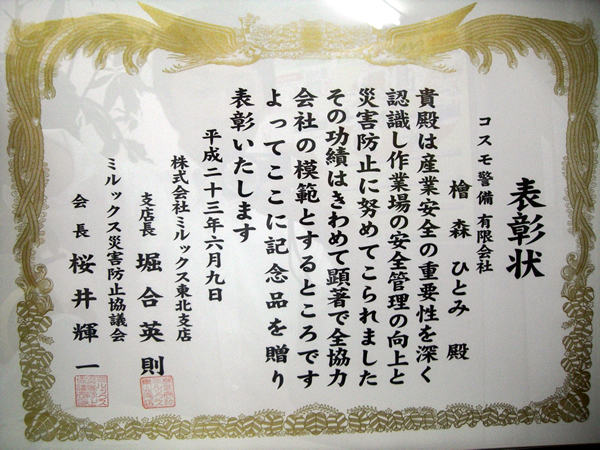 表彰状
コスモ警備 有限会社
檜森 ひとみ 殿
貴殿は産業安全の重要性を深く
認識し作業場の安全管理の向上と
災害防止に努めてこられました
その功績はきわめて顕著で全協力
会社の模範とするところです
よってここに記念品を贈り
表彰いたします
平成二十三年六月九日
株式会社ミルックス東北支店
支店長 堀合英則
ミルックス災害防止協議会
会長 桜井輝一